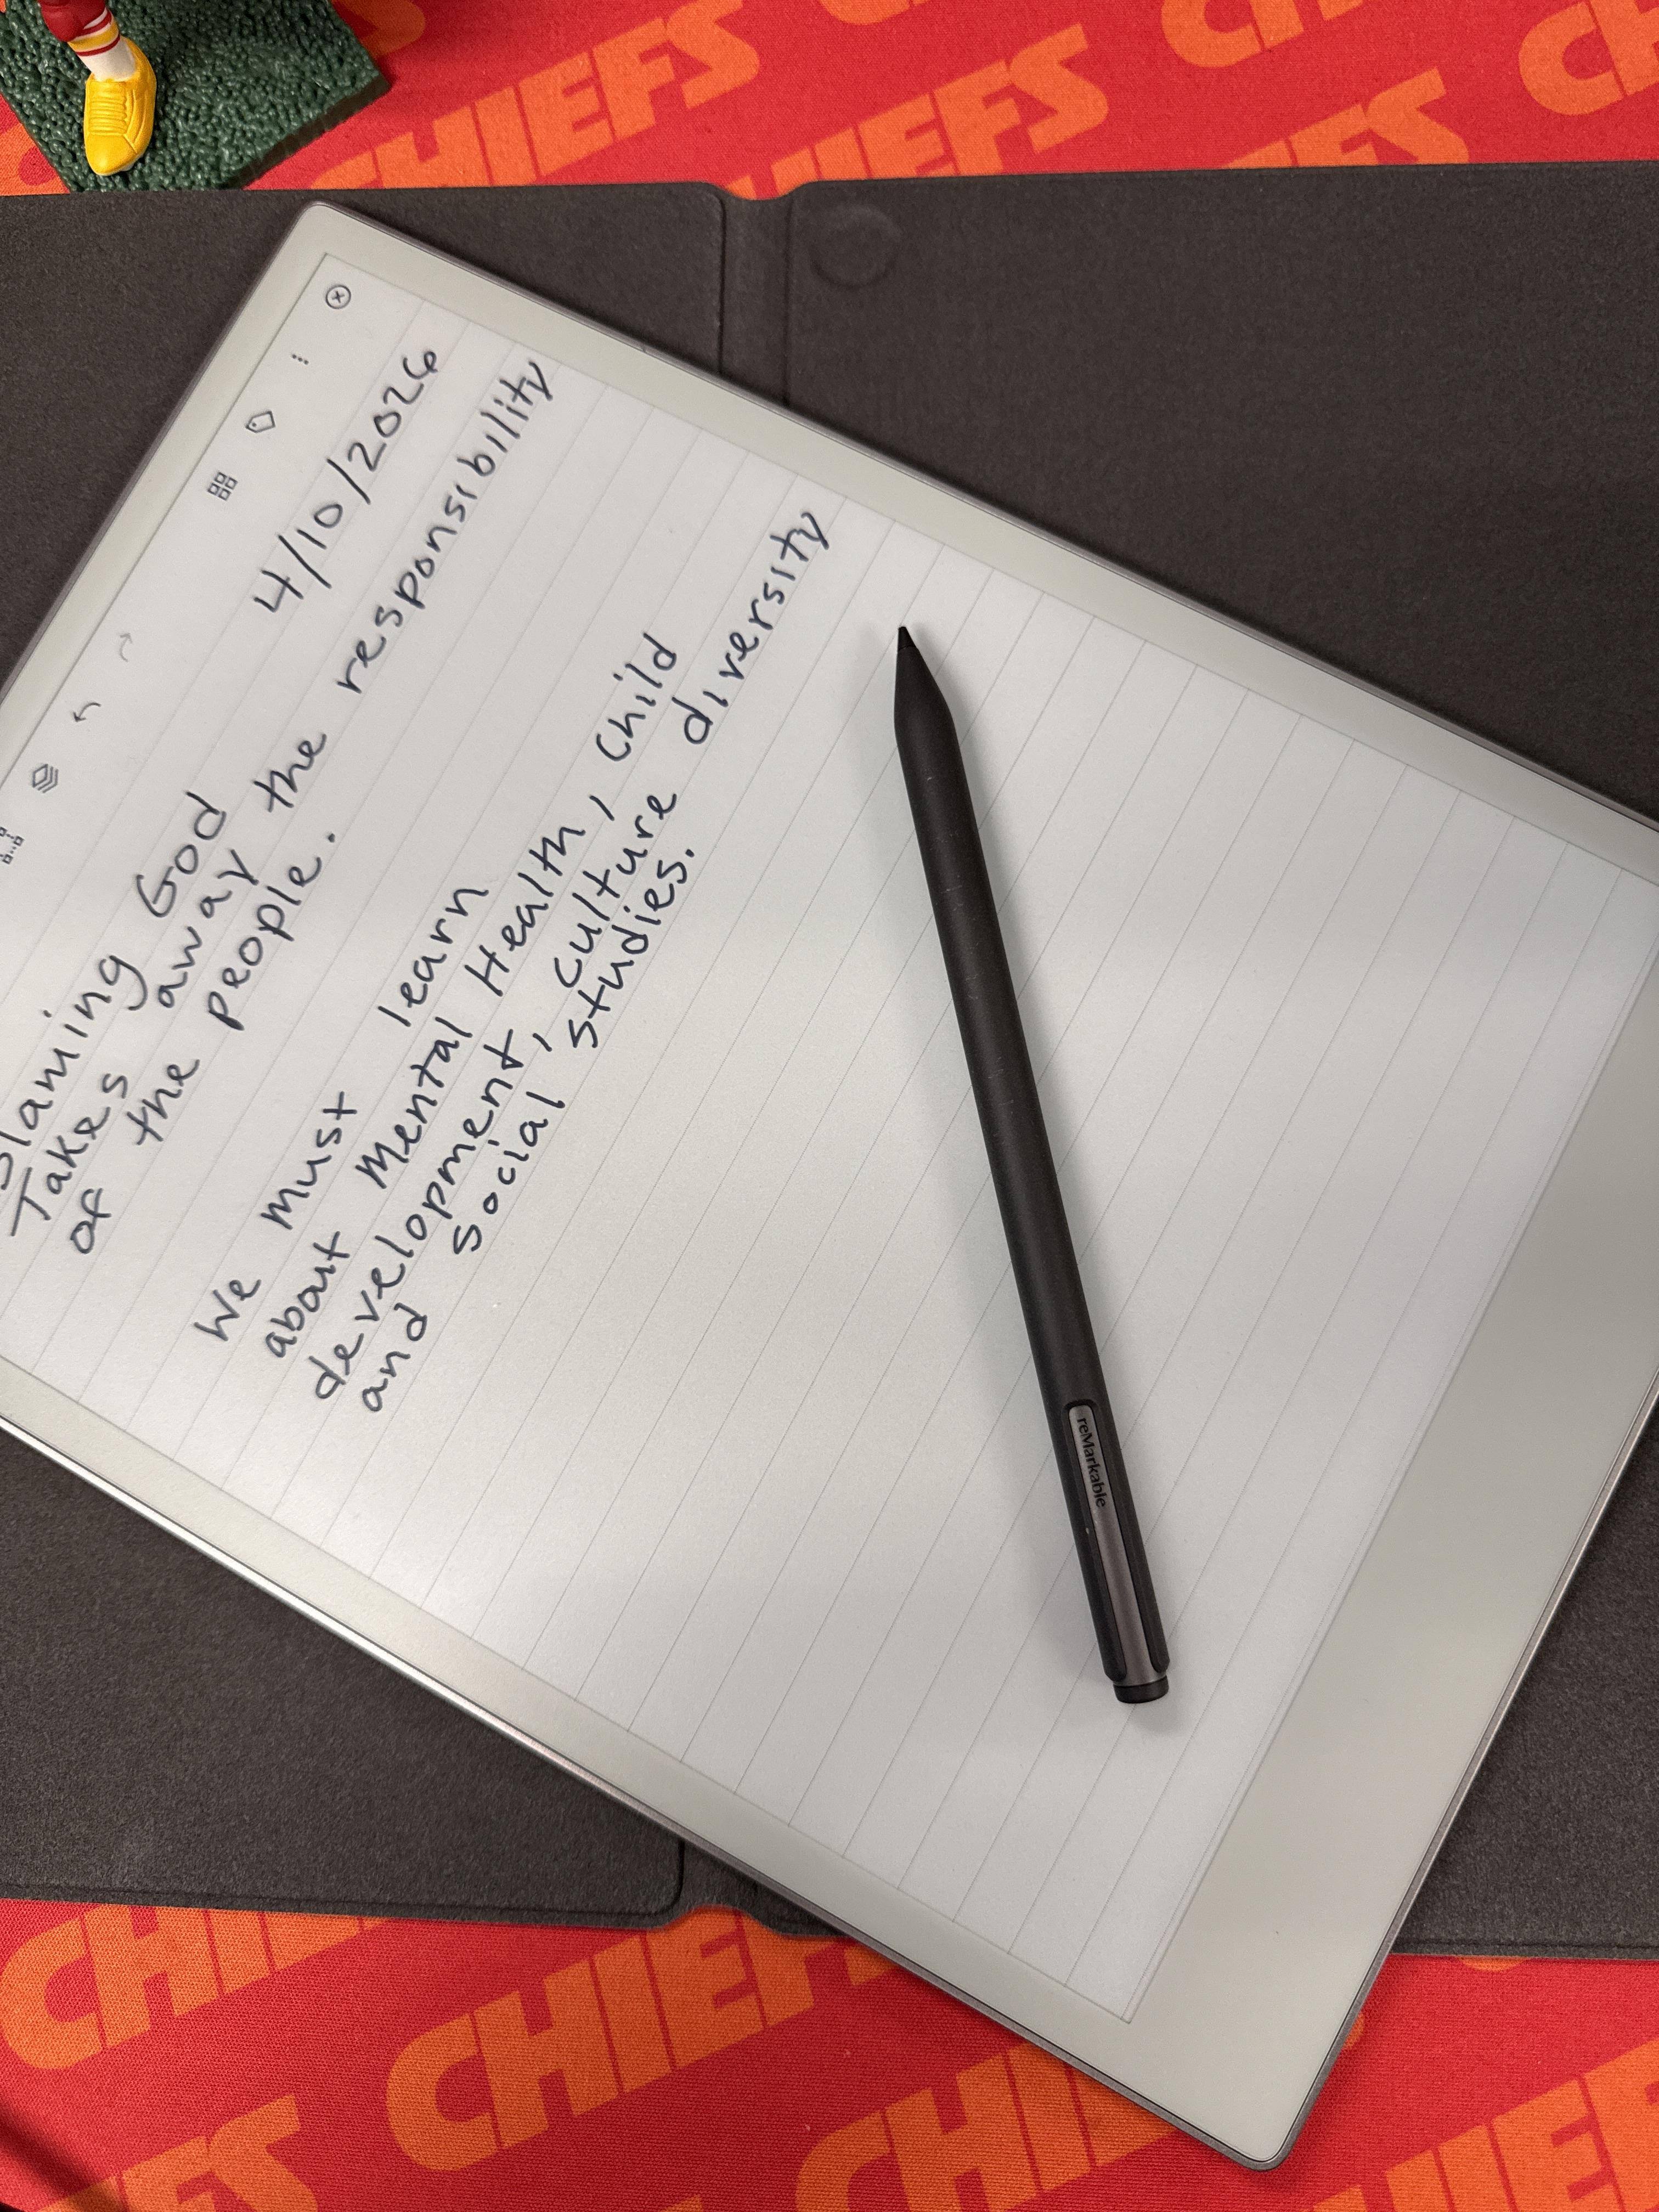 CHIEFS
CHIEFS
4/10/2026
Blaming God
Takes away the responsibility
of the people.
We must learn
about Mental Health, Child
development, Culture diversity
and social studies.
reMarkable
CHIEFS
CHIEFS